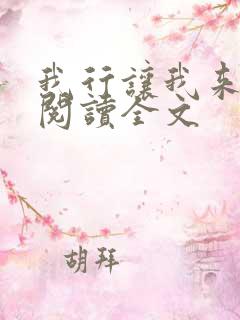 我行讓我来
閱讀全文
胡拜